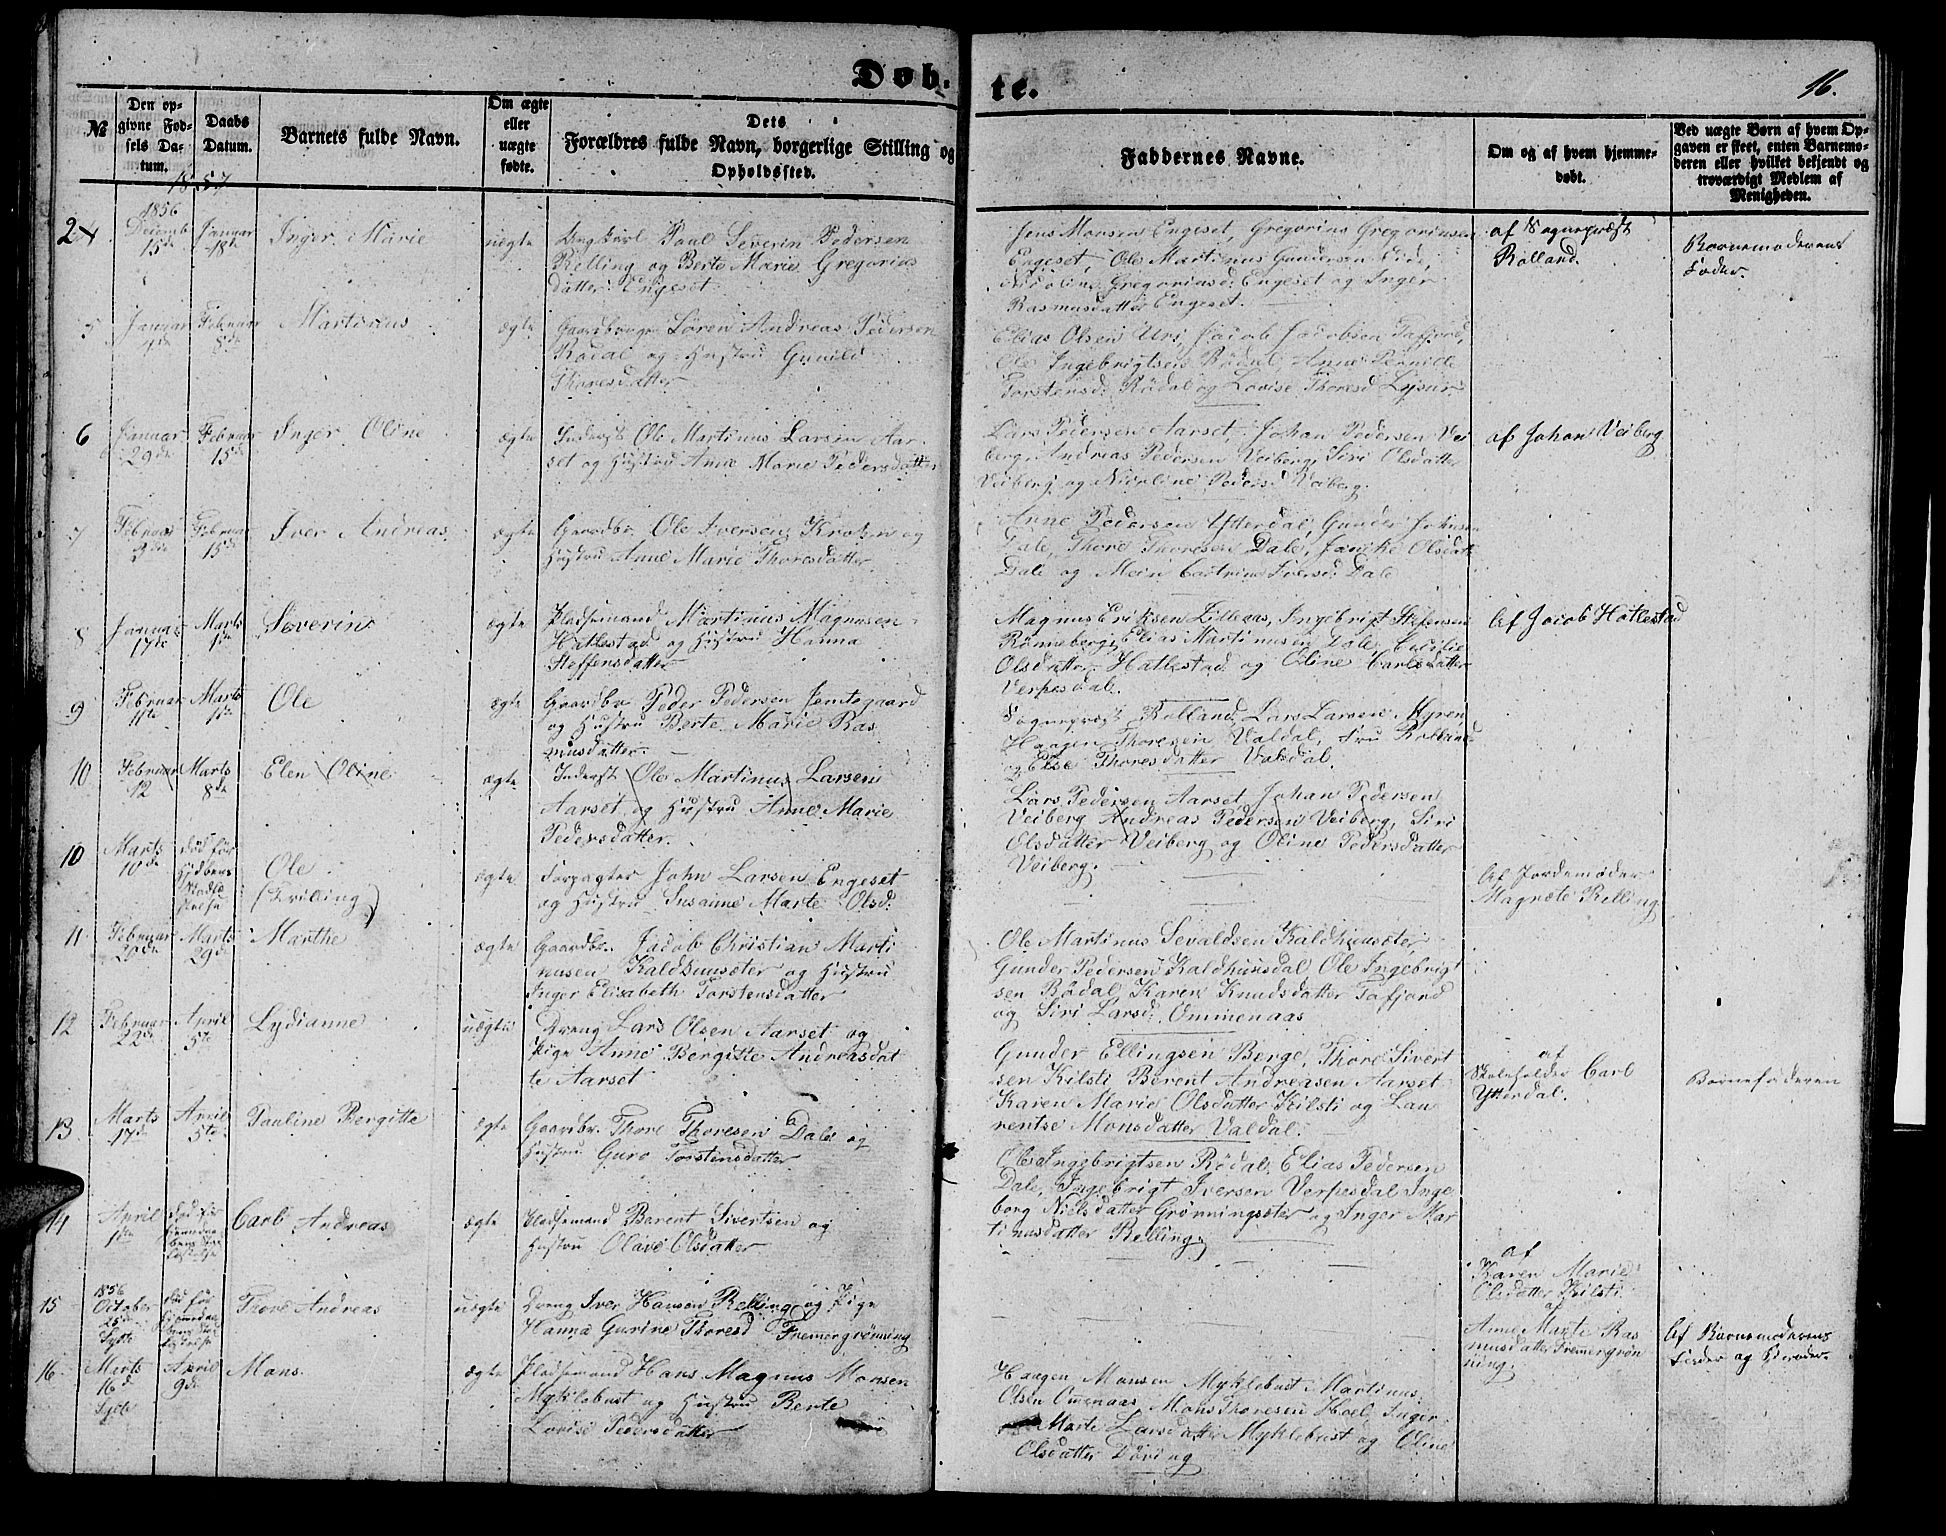 Døb-
te.
16.
№
Den op-
givne Fød-
sels Da-
tum.
Daabs
Datum.
Barnets fulde Navn.
Om ægte
eller
uægte
fødte.
Dets
Forældres fulde Navn, borgerlige Stilling og
Opholdssted.
Faddernes Navne.
Om og af hvem hjemme-
døbt.
Ved uægte Børn af hvem Op-
gaven er skeet, enten Barnemo-
deren eller hvilket bekjendt og
troværdigt Medlem af
Menigheden.
1857
1856
Decemb
15de
Januar
18de
Inger Marie
uægte
Ungkarl Paul Severin Pedersen
Relling og Berte Marie Gregorius
datter Engeset
Jens Monsen Engeset, Gregorius Gregoriusen
Engeset, Ole Martinus Gundersen Eide,
Gregoriusd. Engeset og Inger
Rasmusdatter Engeset.
af Sognepræst
Rolland.
Barnemoderens
Fader.
5
Januar
Februar
8de
Martinus
ægte
Gaardbruger Søren Andreas Pedersen
Rødal og Hustru Gunild
Thoresdatter
Elias Olsen Uri, Jacob Jacobsen Tafjord,
Ole Ingebrigtsen Rødal, Anne Pernille
Torstensd. Rødal og Lovise Thoresd
6
Januar
29de
Februar
15de
Inger Oline
ægte
Inderst Ole Martinus Larsen Aar-
set og Hustru Anne Marie Pedersdatter
Lars Pedersen Aarset, Johan Pedersen Vei
berg, Andreas Pedersen Veiberg, Siri Olsdatter
Veiberg og Nicoline Pedersd Veiberg.
af Johan Veiberg
7
Februar
Februar
15de
Iver Andreas
ægte
Gaardbr Ole Iversen Kroken og
Hustru Anne Marie Thoresdatter
Arne Pedersen Ytterdal, Gunder Johnsen
Dale, Thore Thoresen Dale, Olsdatt
Dale og Catrine Iversd: Dale
8
Januar
17de
Marts
1ste
Severin
ægte
Pladsemand Martinus Magnusen
Hatlestad og Hustru Hanna
Steffensdatter
Magnus Eriksen Lilleaas, Ingebrigt Steffensen
Rønneberg, Elias Martinusen Dale, Cecilie
Olsdatter Hatlestad og Oline Carlsdatter
Verpesdal.
Af Jacob Hatlestad
9
Februar
11te
Marts
1ste
Ole
ægte
Gaardbr Peder Pedersen Jemtegaard
og Hustru Berte Marie Ras
musdatter
Sognepræst Rolland, Lars Larsen Myren,
Haagen Thoresen Valdal, Fru Rolland
og Else Thoresdatter Valdal.
10
Februar
12
Marts
8de
Elen Oline
ægte
Inderst Ole Martinus Larsen
Aarset og Hustru Anne Marie
Pedersdatter.
Lars Pedersen Aarset, Johan Pedersen
Veiberg Andreas Pedersen Veiberg, Siri
Olsdatter Veiberg og Oline Pedersdatter
Veiberg.
10
Marts
10de
død før
Ole
(Trilling)
ægte
Forpagter John Larsen Engeset
og Hustru Susanne Marte Olsd:
Af Jordemoder
Magnete Relling
11
Februar
20de
Marts
29de
Marthe
ægte
Gaardbr. Jacob Christian Marti
nusen Kaldhussæter og Hustru
Inger Elisabeth Torstensdatter
Ole Martinus Sevaldsen Kaldhussæter,
Gunder Pedersen Kaldhusdal, Ole Ingebrigt
sen Rødal, Karen Knudsdatter Tafjord
og Siri Larsd: Ommenaas
12
Februar
22de
April
5te
Lydianne
uægte
Dreng Lars Olsen Aarset og
Pige Anne Bergitte Andreasdat
te Aarset
Gunder Ellingsen Berge, Thore Sivert
sen Kilsti Berent Andreasen Aarset
Karen Marie Olsdatter Kilsti og Lau
rentse Monsdatter Valdal.
af
Skoleholder Carl
Ytterdal.
Barnefaderen
13
Marts
17de
April
5te
Pauline Bergitte
ægte
Gaardbr. Thore Thoresen Dale og
Hustru Guro Torstensdatter
Ole Ingebrigtsen Rødal, Elias Pedersen
Dale, Ingebrigt Iversen Verpesdal Inge
borg Nielsdatter Grønningsæter og Inger Mar
tinusdatter Relling.
14
April
1ste
død før
Carl Andreas
ægte
Pladsemand Barent Sivertsen og
Hustru Olave Olsdatter
af
Karen Marie
Olsdatter Kilsti.
15
1856
October
25de
Sylte
død før
Thore Andreas
uægte
Dreng Iver Hansen Relling og Pige
Hanna Gurine Thoresd Fremergrønning
af
Anne Marte Ras
musdatter Fremergrøn
ning.
Af Barnemoderens
Fader og
16
Marts
16de
Sylte
April
9de
Mons.
ægte
Pladsemand Hans Magnus Monsen
Myklebust og Hustru Berte
Lovise Pedersdatter
Haagen Monsen Myklebust, Martinus
Olsen Omenaas, Mons Thoresen Hoel, Inger
Marte Larsdatter Myklebust og Oline
Olsdatter Døving